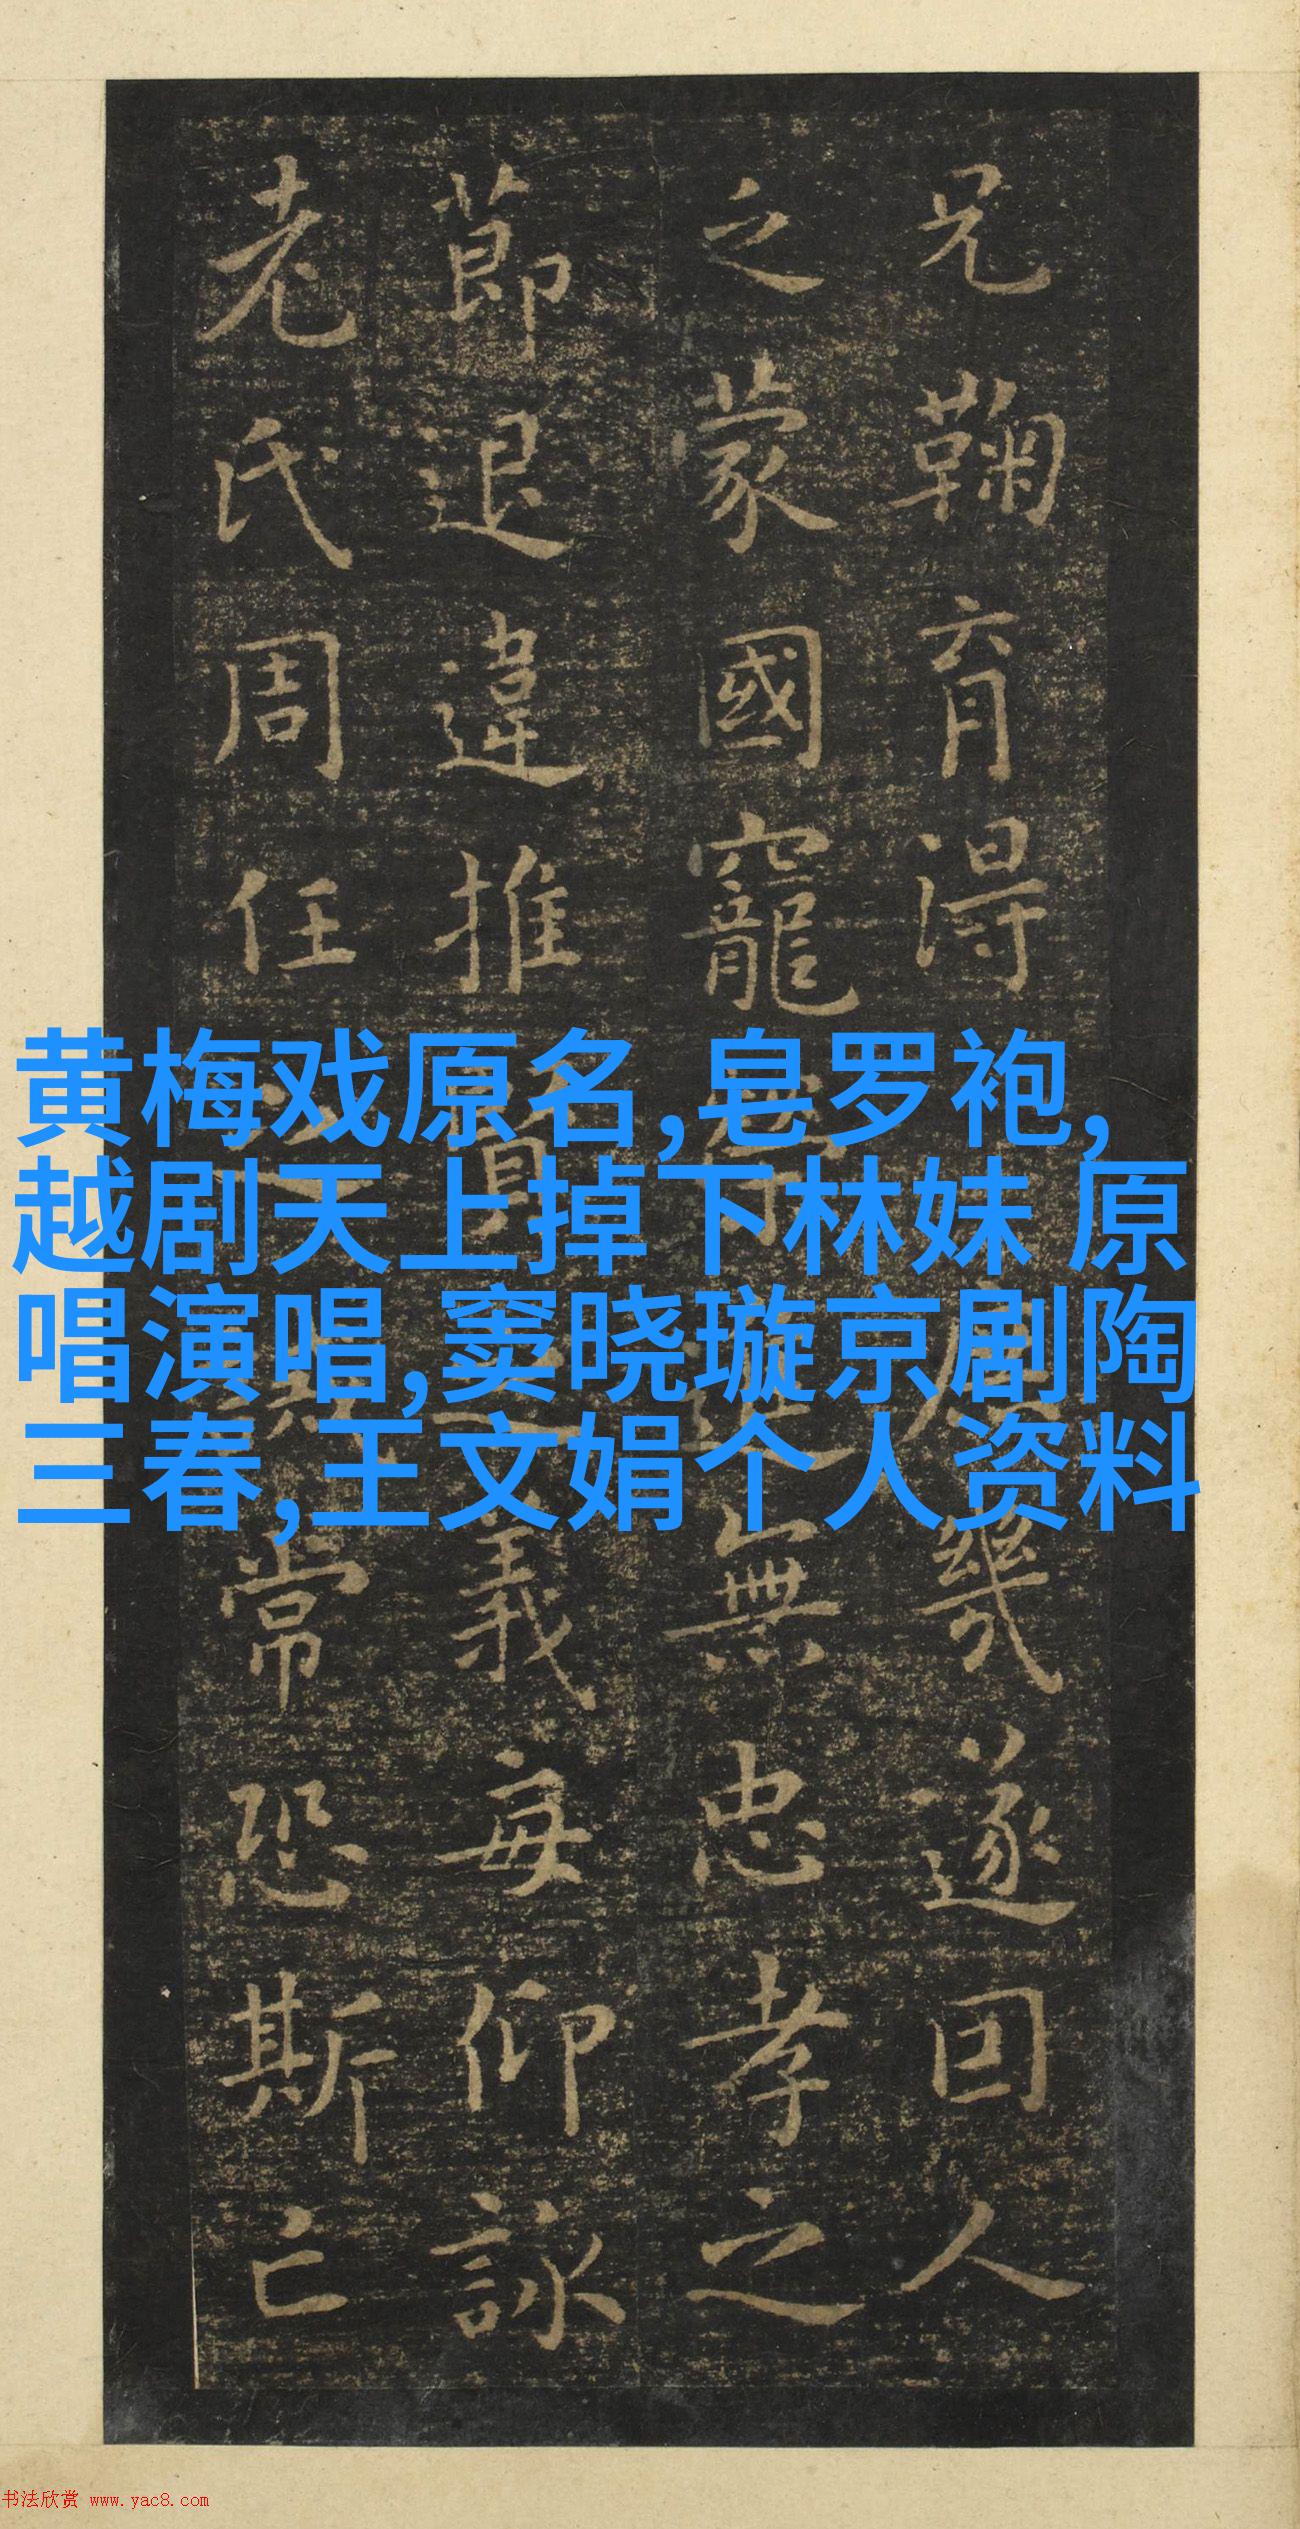 兄鞠育得漸庶幾遂因人
之蒙國寵榮進無忠孝之
節退違推賢之義每仰詠
老氏周任之誡常恐斯亡
黄梅戏原名,皂罗袍,
越剧天上掉下林妹 原
唱演唱,窦晓璇京剧陶
三春,王文娟个人资料
书法欣赏 www.yac8.com